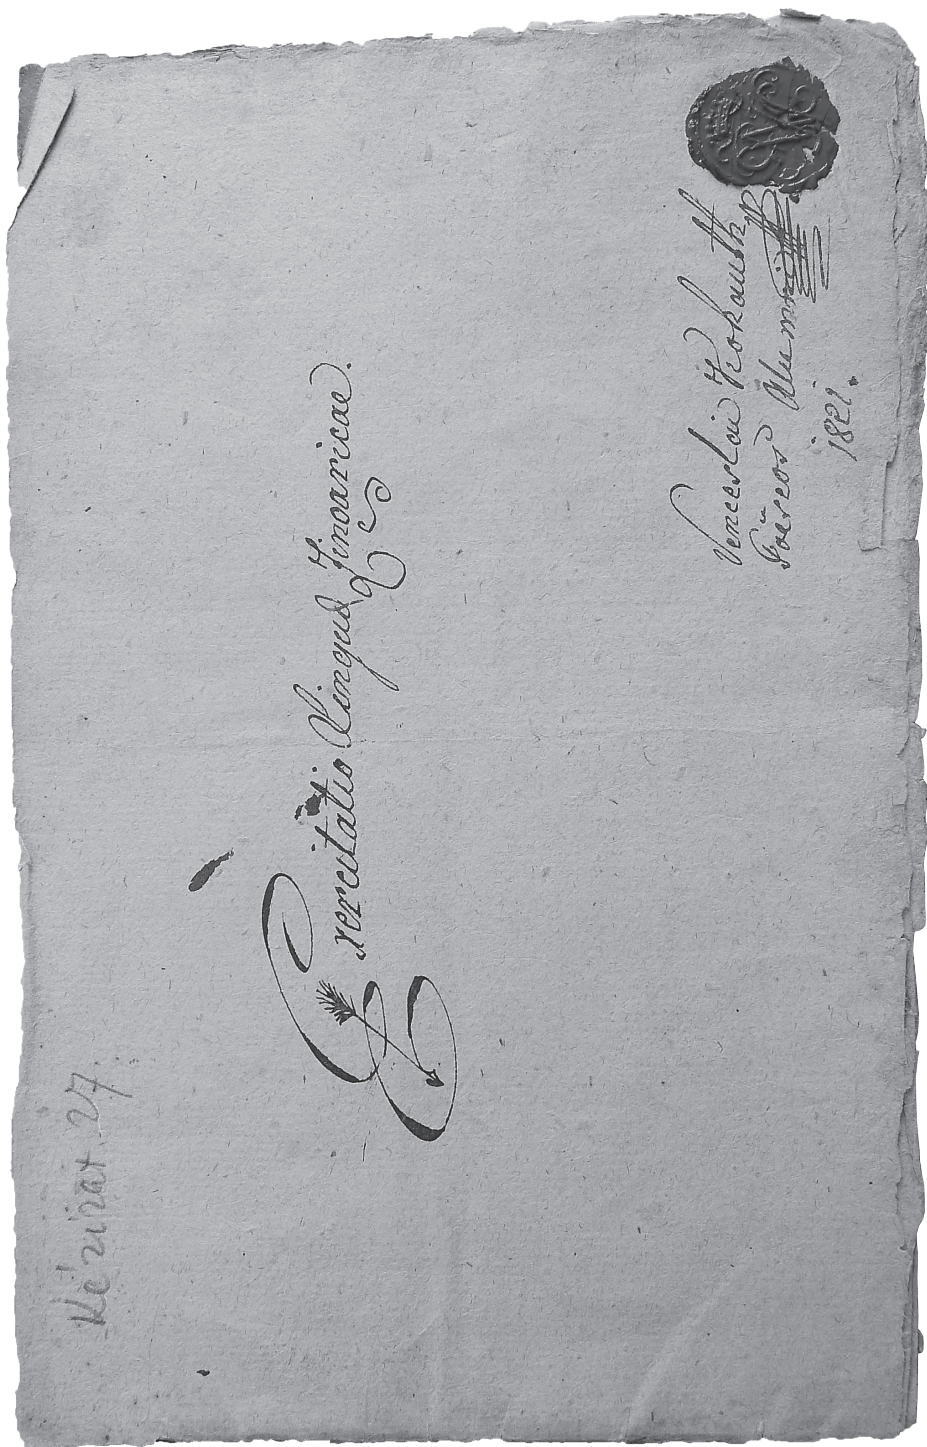 Kézirat. 27
Exercitatio Linguæ Zingaricae.
Venceslai Kokauth
Poëseos Alumni
1821.